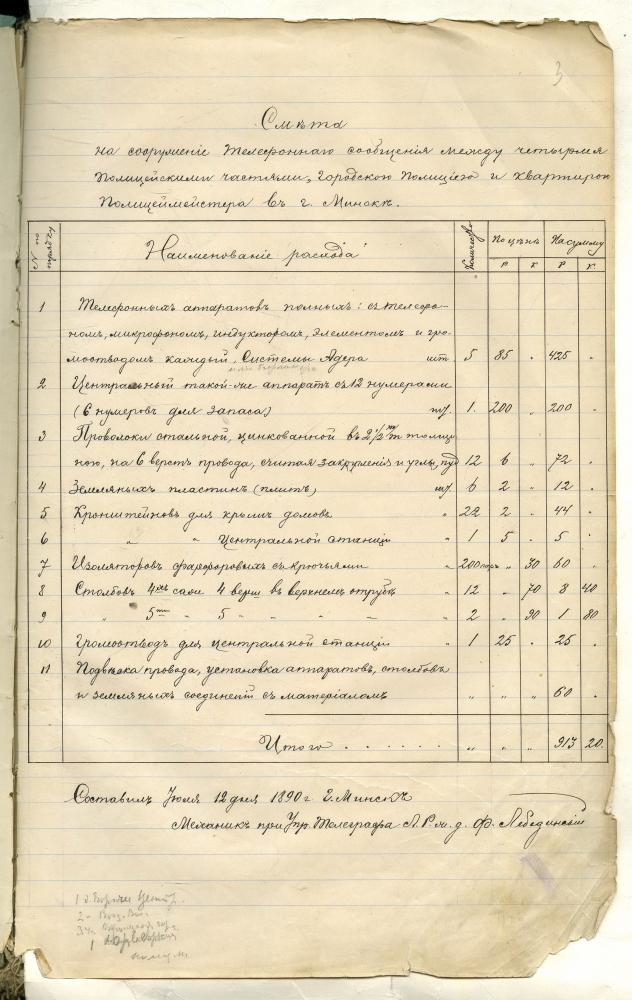 3
Смѣта
на сооруженіе Телефоннаго сообщенія между четырьмя
Полицейскими частями, Городскою Полиціею и квартирою
Полицеймейстера въ г. Минскѣ.
№ по порядку Наименованіе расхода Количество По цѣнѣ На сумму
Р К Р К
1 Телефонныхъ аппаратовъ полныхъ: съ телефо-
номъ, микрофономъ, индукторомъ, элементомъ и гро-
моотводомъ каждый, Системы Адера шт 5 85 „ 425 „
2 Центральный такой-же аппаратъ съ 12 нумерами
(6 нумеровъ для запаса) шт. 1. 200 „ 200 „
3 Проволоки стальной, цинкованной въ 2½ m/m толщи-
ною, на 6 верстъ провода, считая закрученія и углы, пуд 12 6 „ 72 „
4 Земляныхъ пластинъ (плитъ) шт. 6 2 „ 12 „
5 Кронштейновъ для крышъ домовъ „ 22 2 „ 44 „
6 „ „ Центральной станціи „ 1 5 „ 5 „
7 Изоляторовъ фарфоровыхъ съ крючьями „ 200 „ 30 60 „
8 Столбовъ 4хъ саж 4 верш въ верхнемъ отрубѣ „ 12 „ 70 8 40
9 „ 5ти „ 5 „ „ „ „ „ 2 „ 90 1 80
10 Громоотводъ для центральной станціи „ 1 25 „ 25 „
11 Подвѣска провода, установка аппаратовъ, столбовъ
и земляныхъ соединеній съ матеріаломъ „ „ „ 60 „
Итого . . . . . . „ „ „ 913 20.
Составилъ Іюля 12 дня 1890 г. г. Минскъ
Механикъ при Упр. Телеграфа Ф. Лебединскій